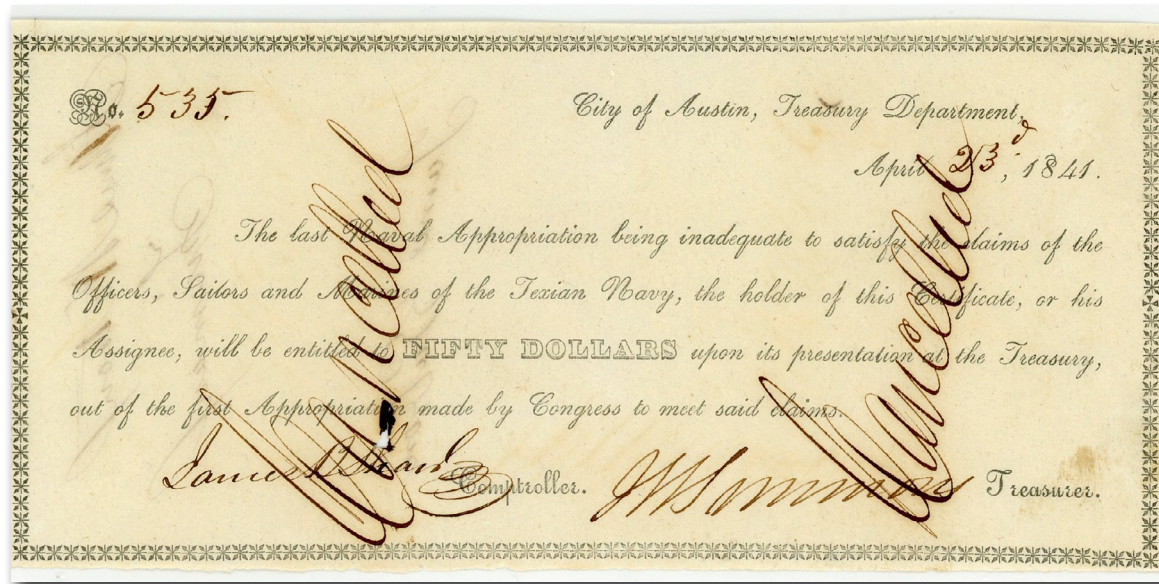 No. 535.
City of Austin, Treasury Department,
April 23d, 1841.
The last Naval Appropriation being inadequate to satisfy the claims of the
Officers, Sailors and Marines of the Texian Navy, the holder of this Certificate, or his
Assignee, will be entitled to FIFTY DOLLARS upon its presentation at the Treasury,
out of the first Appropriation made by Congress to meet said claims.
James B Shaw Comptroller. W Simmons Treasurer.
Cancelled
Cancelled